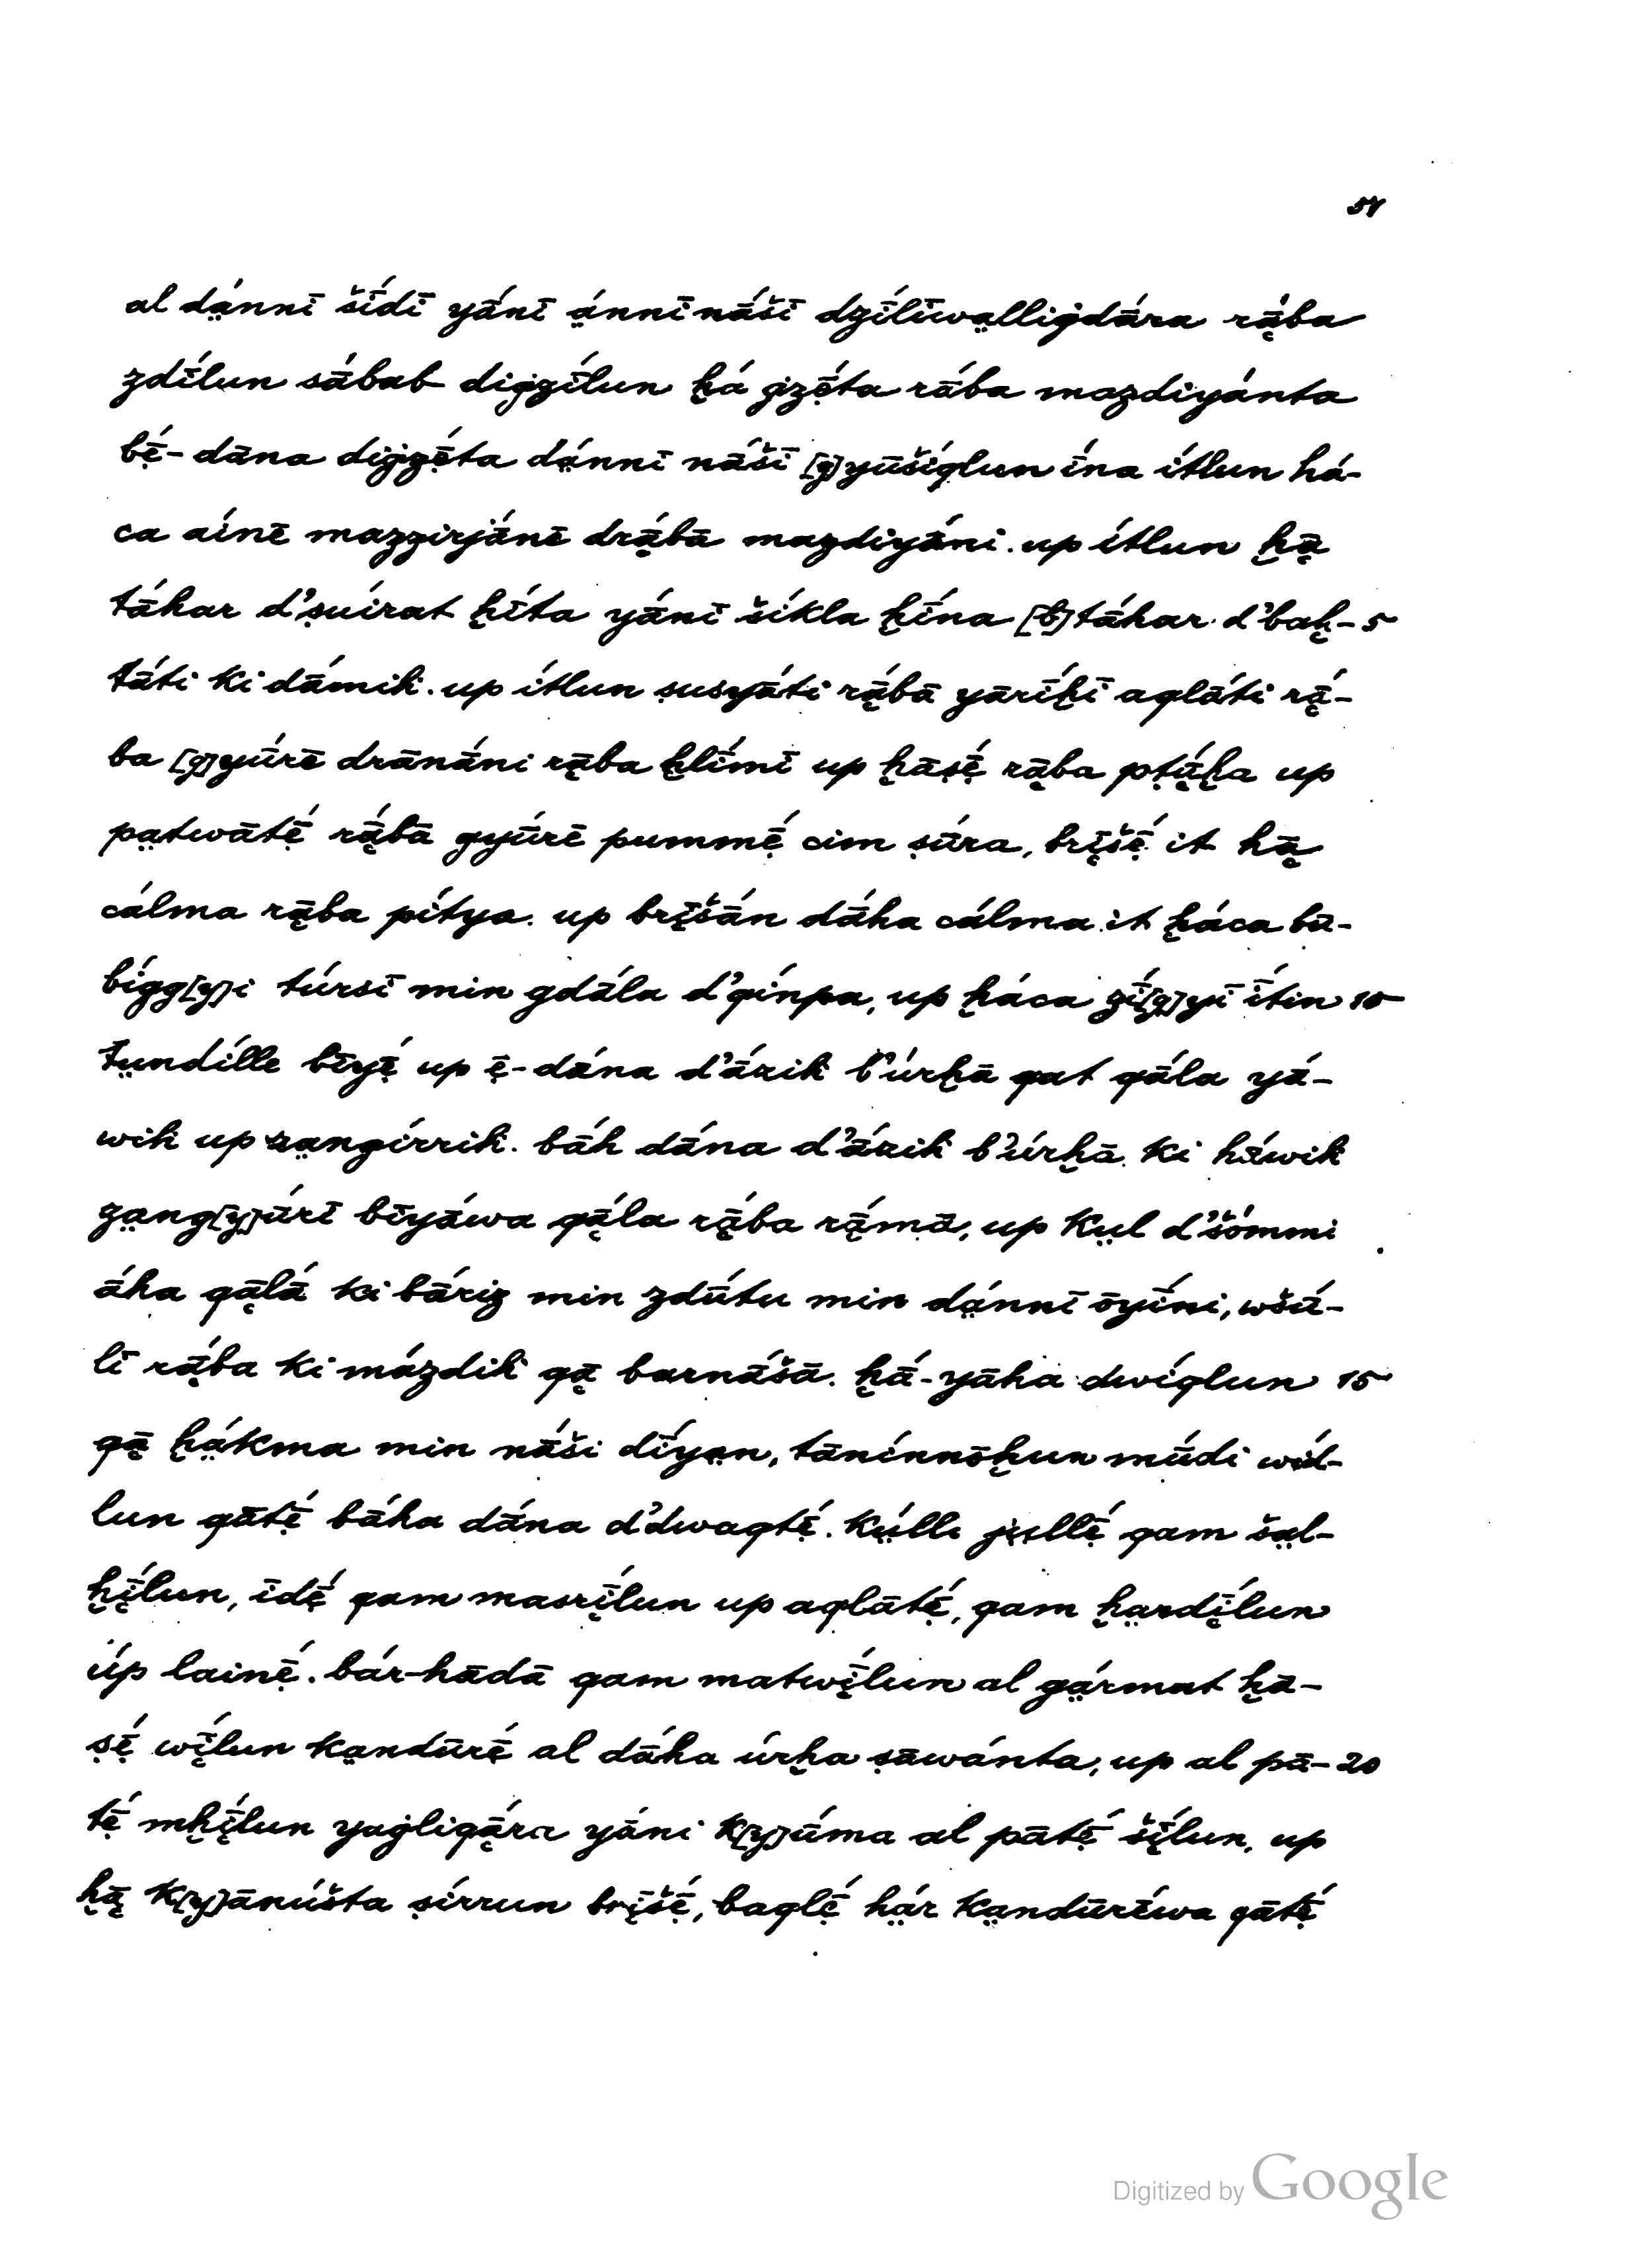 54
al dạ́nnī šī́dī yā́nī ạ́nnī nā́šī dzī́līwạlligdā́ra rạ̄́ba
zdī́lun sā́bab diġzī́lun ḫá ġzẹ̄́ta rā́ba mazdiyā́nta
bẹ̄́-dāna diġzẹ̄́ta dạ́nnī nā́šī [g]yūšíqlun ī́na ítlun há-
ca aínē mazzirjā́nē drạ̄́bā mazdiyā́ni. up ítlun ḫạ̄
ṭā́har d'ṣuírat ḫī́ta yā́nī šíkla ḫī́na [b]ṭā́har d'baḫ- 5
tā́ti ki dā́mik. up ítlun ṣusyā́ti rạ̄́bā yārī́ḫī aqlā́ti rạ̄́-
ba [g]yū́rē drānā́ni rạ̄ba ḫlī́mī up ḫāṣẹ̄́ rạ̄ba pṭạ̄́ḫa up
pạtwātẹ̄́ rạ̄́bā gyū́rē pummẹ̄́ cim ṣū́ra, brīšẹ̄́ it ḫạ̄
cálma rạ̄ba pítya. up brīšā́n dā́ha cálma it ḫáca bū-
bígg[y]i túrsī min gdā́la d'qínpa, up ḫáca zī́[g]yī ī́tin 10
ṭụndílle bīyẹ̄́ up ẹ̄-dā́na d'ā́zik b'úrḫā qat qā́la yā́-
wik up zạngírrik. bāh dā́na d'ā́zik b'úrḫā ki hā́wik
zạng[y]ū́rī bīyā́wa qạ̄́la rạ̄́ba rạ̄́mā, up kụl d'šṓmmi
ā́ha qạ̄lā́ ki bā́riz min zdū́tu min dạ́nnī ōyī́ni, wšū́-
lī rạ̄́ba ki mázdik qạ̄ barnā́šā. ḫá-yāha dwíqlun 15
qạ̄ ḫạ́kma min nā́ši dī́yạn, tānínnōḫun mū́di wíd-
lun qātẹ̄́ bā́ha dā́na d'dwaqtẹ̄́. kụ́lle jụllẹ̄́ qam šạl-
ḫī́lun, īdẹ̄́ qam masrī́lun up aqlātẹ̄́, qam ḫạrdī́lun
úp lainẹ̄́. bár-hādā qam matwī́lun al gạ́rmat ḫā-
ṣẹ̄́ wī́lun kạndūrẹ̄́ al dā́ha úrḫa ṣāwánta, up al pā- 20
tẹ̄́ mḫī́lun yaġliqạ̄́ra yā́ni k[y]ū́ma al pātẹ̄́ šī́lun, up
ḫạ̄ k[y]ānúšta ṣírrun brīšẹ̄́, baqlẹ̄́ hạ́r kạndūrḗwa qātẹ̄́
Digitized by Google